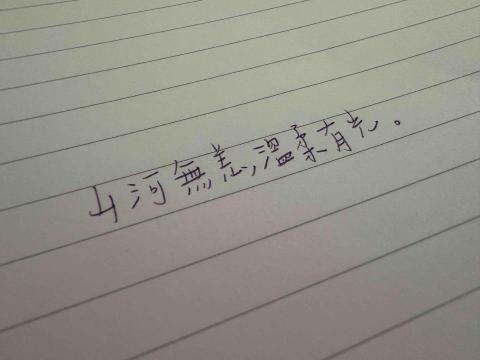 山河無恙,溫柔有光。